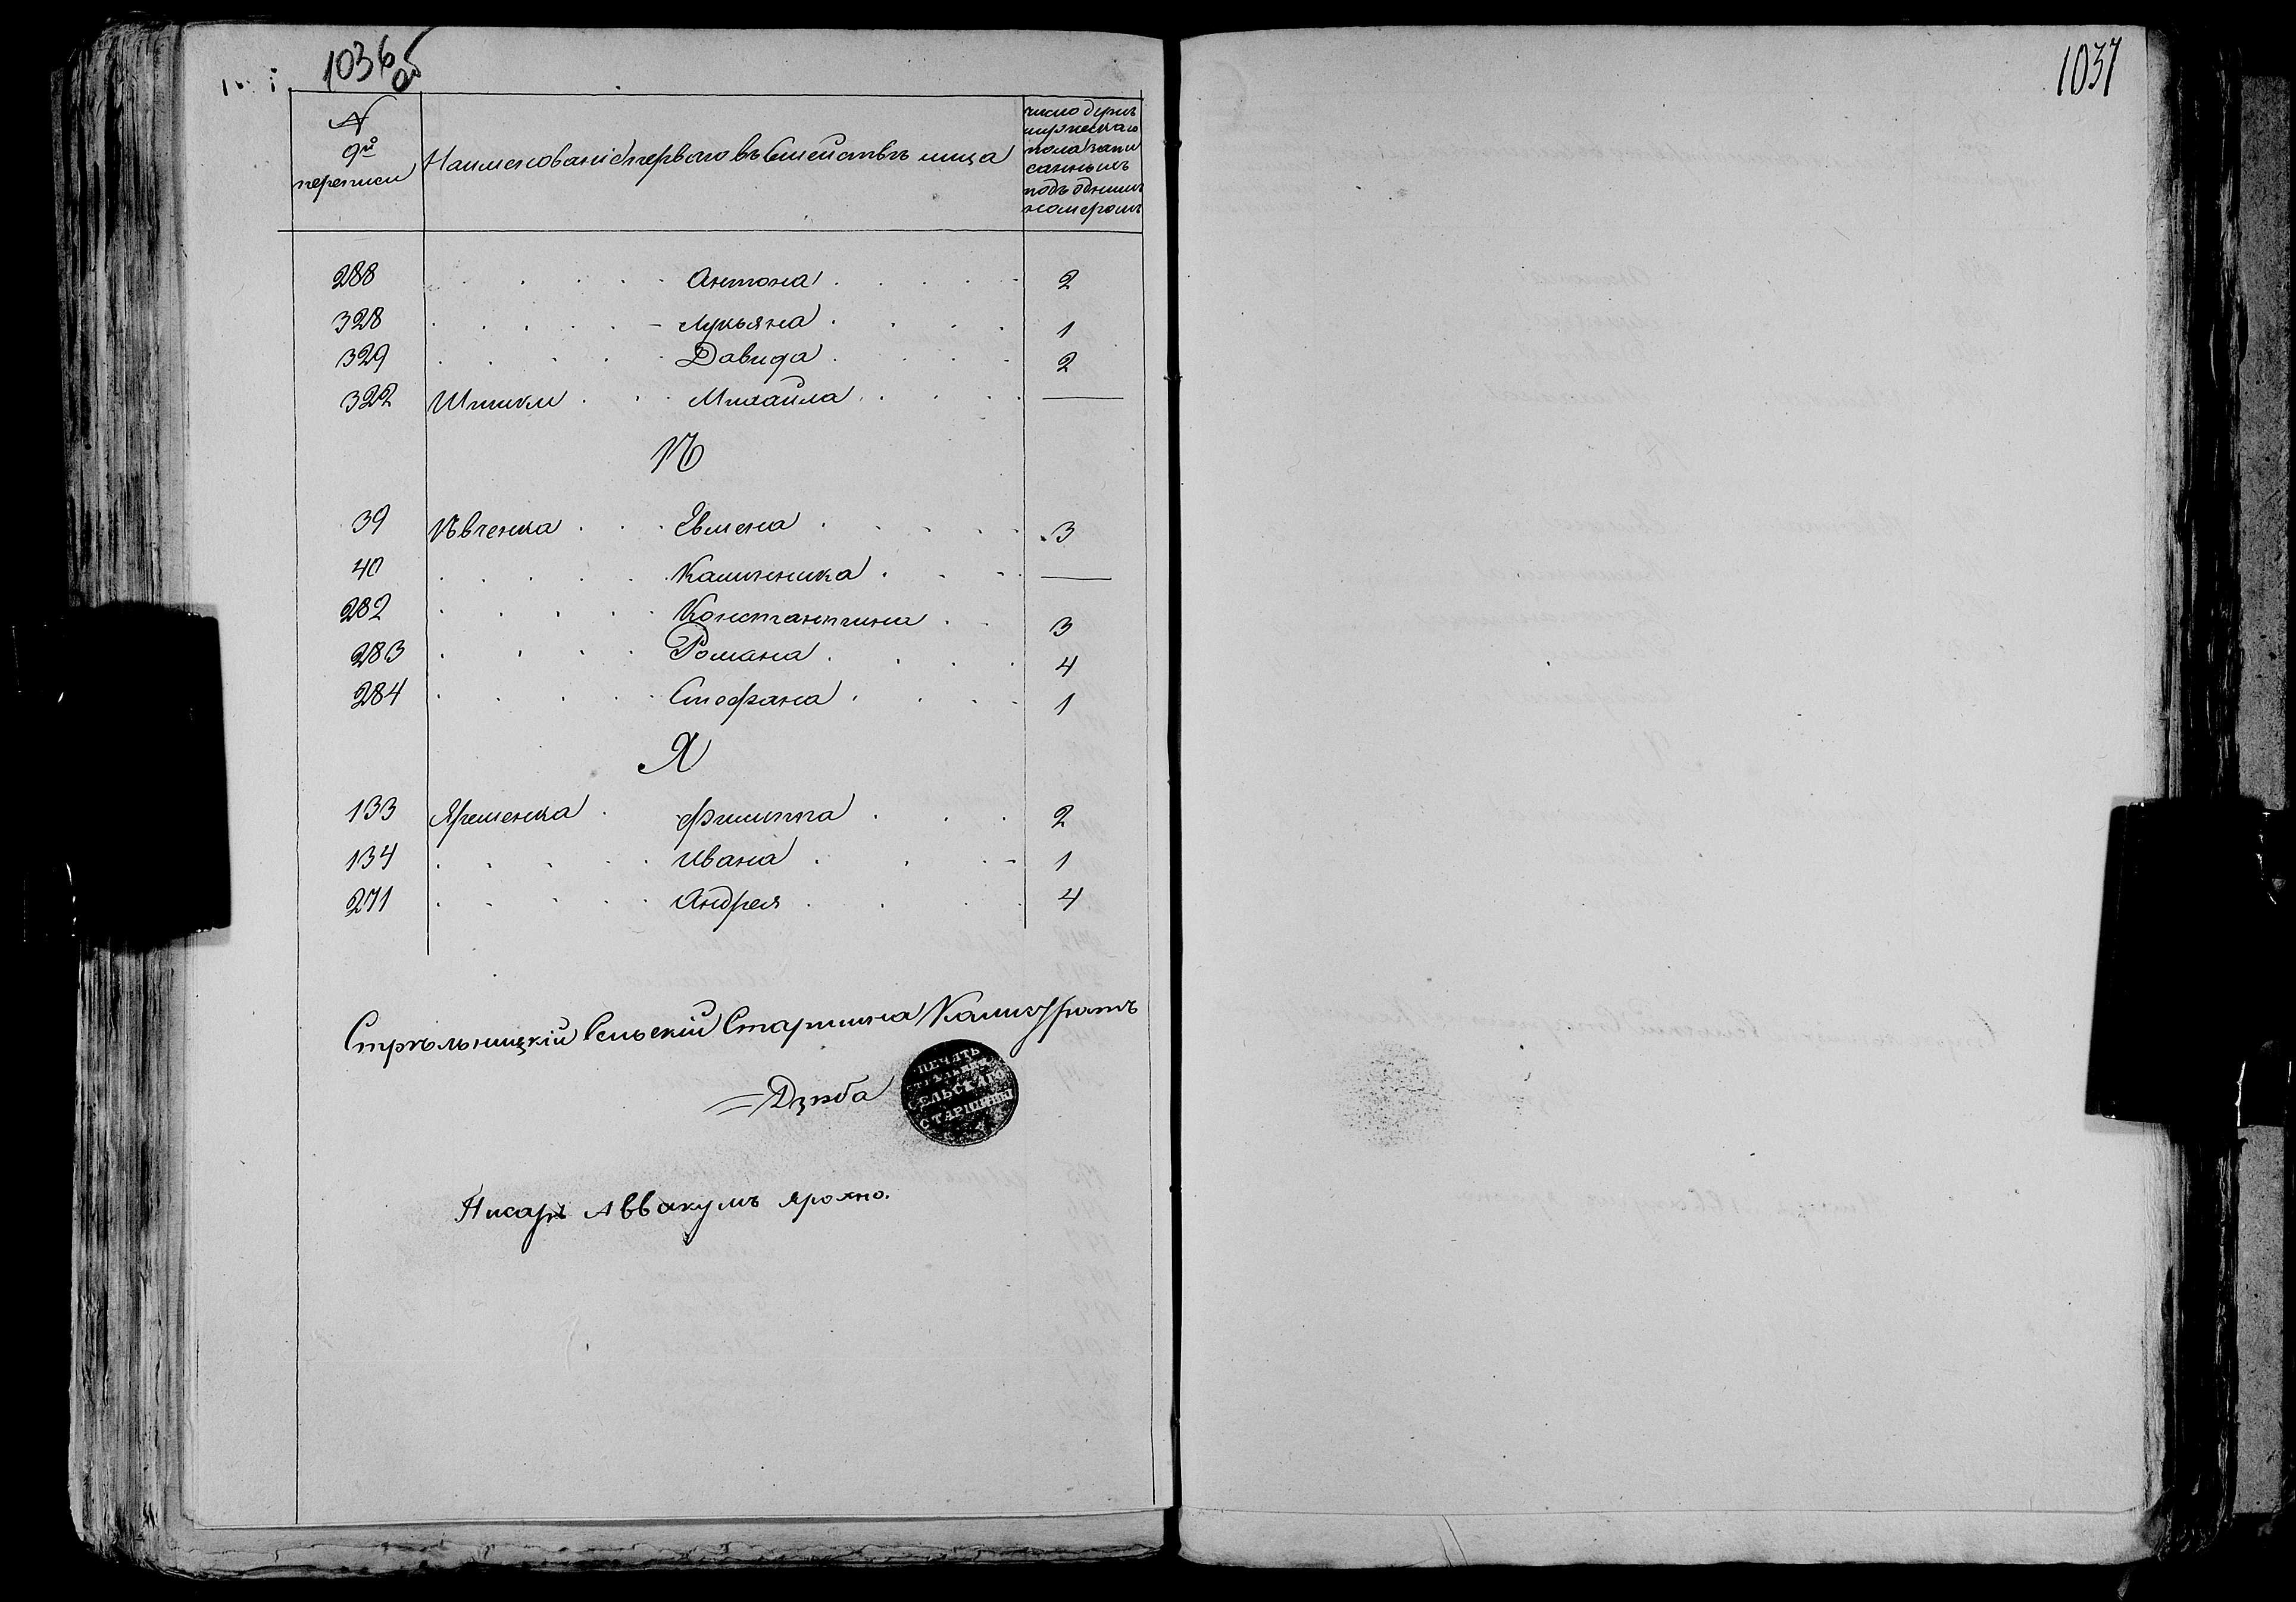 1036 об
1037
№
9й
переписи
Наименованіе перваго въ Семействѣ лица
число душъ
мужескаго
пола запи
санныхъ
подъ однимъ
номеромъ
288 Антона 2
328 Лукьяна 1
329 Давида 2
322 Шишки Михайла —
Ѣ
39 Ѣвченка Евмена 3
40 Калиника —
282 Константина 3
283 Романа 4
284 Стефана 1
Я
133 Яременка Филиппа 2
134 Ивана 1
271 Андрея 4
Стрѣльницкій Сельскій Старшина Калистратъ
Дзюба
ПЕЧАТЬ
СЕЛЬСКАГО
СТАРШИНЫ
Писарь Аввакумъ Ярохно.